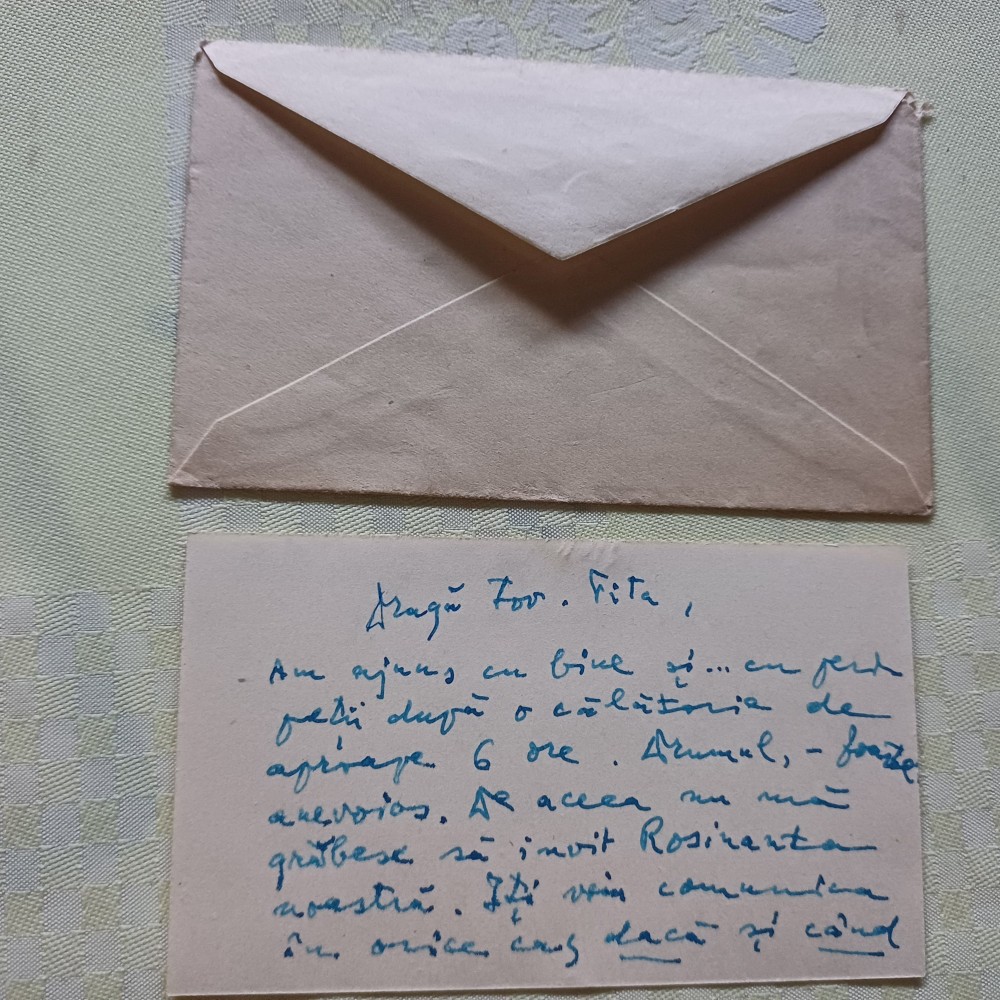 Dragă Tov. Fita,
Am ajuns cu bine și... cu peri
peții după o călătorie de
aproape 6 ore. Drumul, - foarte
anevoios. De aceea nu mă
grăbesc să invit Rosinanta
noastră. Iți voiu comunica
în orice caz dacă și când